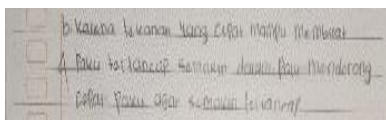 b. Karena tekanan yang cepat mampu membuat
paku tertancap semakin dalam mendorong
paku agar semakin